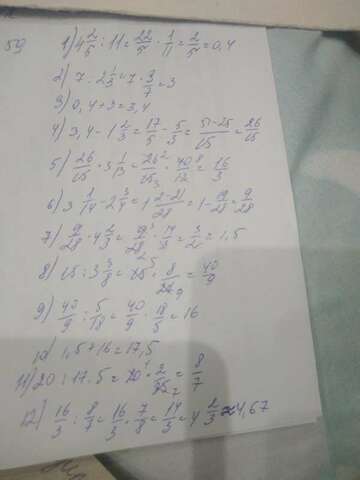 59
1) 4 2/5 : 11 = 22/5 · 1/11 = 2/5 = 0,4
2) 7 : 2 1/3 = 7 · 3/7 = 3
3) 0,4 + 3 = 3,4
4) 3,4 - 1 2/3 = 17/5 - 5/3 = 51-25/15 = 26/15
5) 26/15 · 3 1/13 = 26²/15₃ · 40⁸/13 = 16/3
6) 3 1/14 - 2 3/4 = 1 2-21/28 = 1 - 19/28 = 9/28
7) 9/28 · 4 2/3 = 9/28 · 14/3 = 3/2 = 1,5
8) 15 : 3 3/8 = 15⁵ · 8/27₉ = 40/9
9) 40/9 : 5/18 = 40/9 · 18/5 = 16
10) 1,5 + 16 = 17,5
11) 20 : 17.5 = 20⁴ · 2/35₇ = 8/7
12) 16/3 : 8/7 = 16/3 · 7/8 = 14/3 = 4 2/3 ≈ 4,67